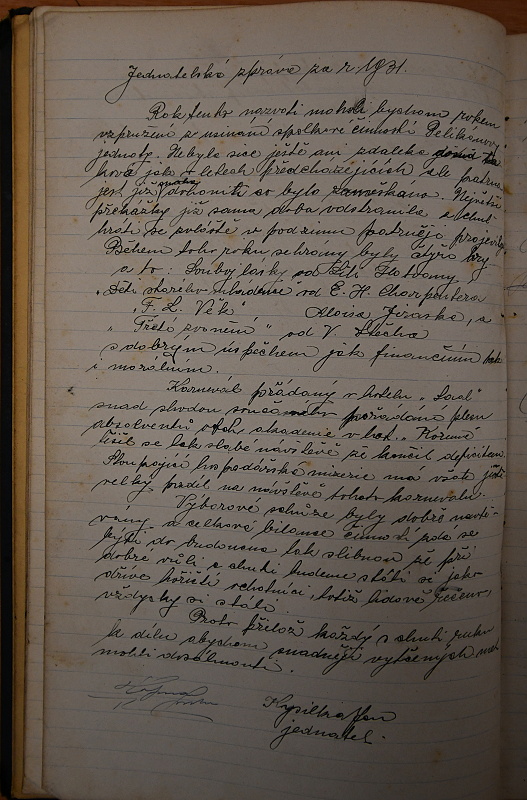 Jednatelská zpráva za r. 1931.
Rok tento nazvati mohli bychom rokem
vzpružení z usínání spolkové činnosti Pelikánovy
jednoty. Nebyla sice ještě ani zdaleka
jak v letech předcházejících ale patrna
jest již snaha dohoniti co bylo zameškáno. Největší
překážky již sama doba odstranila a chuť
hráti se zvláště v podzimu patrněji projevila.
Během toho roku sehrány byly čtyři hry
a to: Souboj lásky od
"Děti starého od E. H. Charpentera
"F. L. Věk" Aloisa Jiráska, a
"Třetí zvonění" od V. Štecha
s dobrým úspěchem jak finančním tak
i morálním.
Karneval pořádaný v hotelu "Saal"
snad shodou současně pořádaná ples
absolventů obch. akademie v hot. "Koruna"
těšil se tak slabé návštěvě že končil deficitem.
Stoupající hospodářská mizerie má všete ještě
velký podíl na návštěvě tohoto karnevalu.
Výborové schůze byly dobře navště-
vovány a celková bilance činnosti zdá se
býti do budoucna tak slibnou že při
dobré vůli a chuti budeme státi se jako
dříve hořičtí ochotníci, totiž lidově řečeno,
vždycky si stáli.
Proto přilož každý s chutí ruku
k dílu abychom snadněji vytčených met
mohli dosáhnouti.
jednatel.